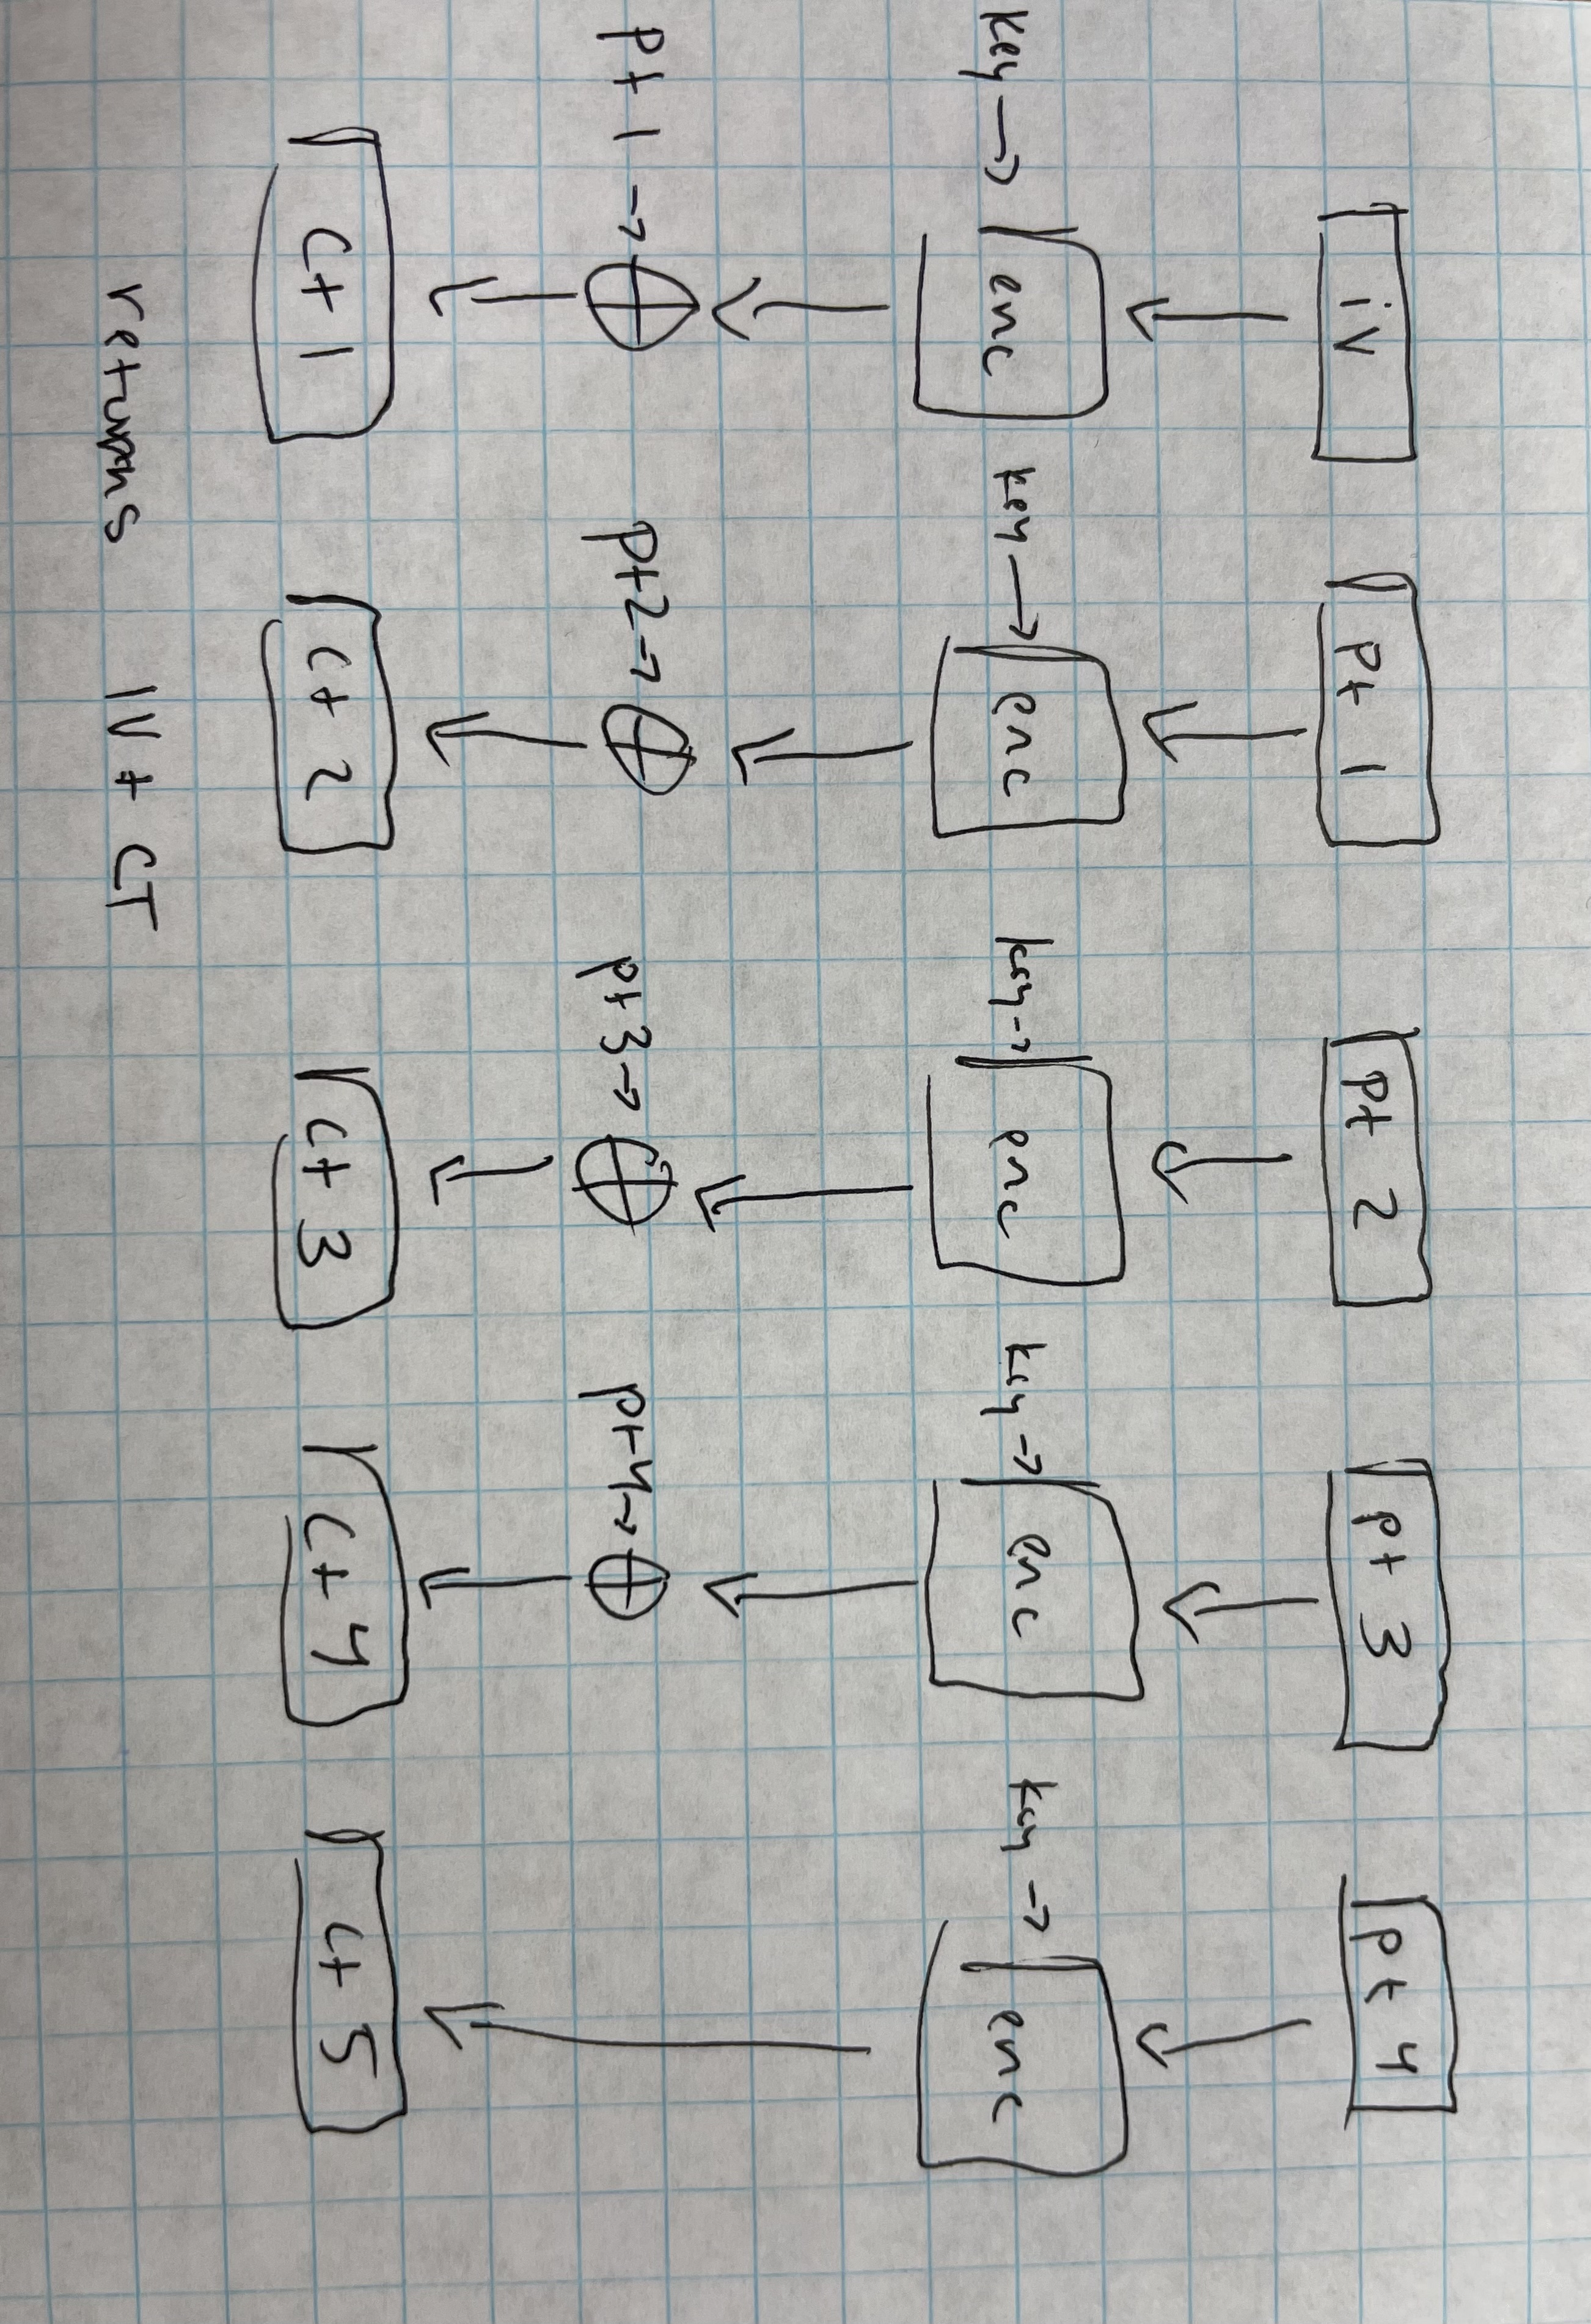 iv pt 1 pt 2 pt 3 pt 4
key → enc key → enc key → enc key → enc key → enc
pt 1 → ⊕ pt2 → ⊕ pt3 → ⊕ pt4 → ⊕
ct 1 ct 2 ct 3 ct 4 ct 5
returns IV + CT